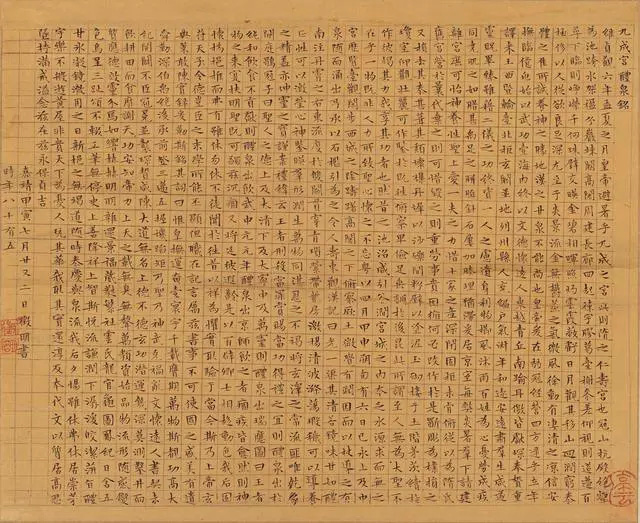 九成宮醴泉銘
維貞觀六年孟夏之月皇帝避暑乎九成之宮此則隋之仁壽宮也冠山抗殿絕壑
為池跨水架楹分巖竦闕高閣周建長廊四起棟宇膠葛臺榭參差仰視則迢遞百
尋下臨則崢嶸千仞珠璧交暎金碧相暉照灼雲霞蔽虧日月觀其移山迴澗窮泰
極侈以人從欲良足深尤至於炎景流金無鬱蒸之氣微風徐動有淒清之涼信安
體之佳所誠養神之勝地漢之甘泉不能尚也皇帝爰在弱冠經營四方逮乎立年
撫臨億兆始以武功壹海內終以文德懷遠人東越青丘南踰丹徼皆獻琛奉贄重
譯來王西暨輪臺北拒玄闕並地列州縣人充編戶氣淑年和邇安遠肅群生咸遂
靈貺畢臻雖藉二儀之功終資一人之慮遺身利物櫛風沐雨百姓為心憂勞成疾
同堯肌之如腊甚禹足之胼胝針石屢加腠理猶滯爰居京室每弊炎暑群下請建
離宮庶可怡神養性聖上愛一夫之力惜十家之產深閉固拒未肯俯從以為隋氏
舊宮營於曩代棄之則可惜毀之則重勞事貴因循何必改作於是斲雕為樸損之
又損去其泰甚葺其頹壞雜丹墀以沙礫間粉壁以塗泥玉砌接於土階茅茨續於
瓊室仰觀壯麗可作鑒於既往俯察卑儉足垂訓於後昆此所謂至人無為大聖不
作彼竭其力我享其功者也然昔之池沼咸引谷澗宮城之內本乏水源求而無之
在乎一物既非人力所致聖心懷之不忘粵以四月甲申朔旬有六日己亥上及中
宮歷覽臺觀閒步西城之陰躊躇高閣之下俯察厥土微覺有潤因而以杖導之有
泉隨而涌出乃承以石檻引為東觀漢記曰光武其清若鏡味甘如醴
南注丹霄之右東流度於雙闕貫穿青瑣縈帶紫房激揚清波滌蕩瑕穢可以導養
正性可以澂瑩心神鑒映群形潤生萬物同湛恩之不竭將玄澤之常流匪唯乾象
之精蓋亦坤靈之寶謹案禮緯云王者刑殺當罪賞錫當功得禮之宜則醴泉出於
闕庭鶡冠子曰聖人之德上及太清下及太寧中及萬靈則醴泉出瑞應圖曰王者
純和飲食不貢獻則醴泉出飲中元元年醴泉出京師飲之者痼疾皆愈然則神
物之來寔扶明聖既可蠲茲沉痼又將延彼遐齡是以百辟卿士相趨動色我后固
懷撝挹推而弗有雖休勿休不徒聞於往昔以祥為懼實取驗於當今斯乃上帝玄
符天子令德豈臣之末學所能丕顯但職在記言屬茲書事不可使國之盛美有遺
典策敢陳實錄爰勒斯銘其詞曰惟皇撫運奄壹寰宇千載膺期萬物斯睹功高大
舜勤深伯禹絕後承前登三邁五握機蹈矩乃聖乃神武克禍亂文懷遠人書契未
紀開闢不臣冠冕並襲琛贄咸陳大道無名上德不德玄功潛運幾深莫測鑿井而
飲耕田而食靡謝天功安知帝力上天之載無臭無聲萬類資始品物流形隨感變
質應德效靈介焉如響赫赫明明雜遝景福葳蕤繁祉雲氏龍官龜圖鳳紀日含五
色烏呈三趾頌不輟工筆無停史上善降祥上智斯悅流謙潤下潺湲皎潔萍旨醴
甘冰凝鏡澈用之日新挹之無竭道隨時泰慶與泉流我后夕惕雖休弗休居崇茅
宇樂不般遊黃屋非貴天下為憂人玩其華我取其實還淳反本代文以質居高思
墜持滿戒溢念茲在茲永保貞吉
嘉靖甲寅七月廿又二日徵明書
時年八十有五